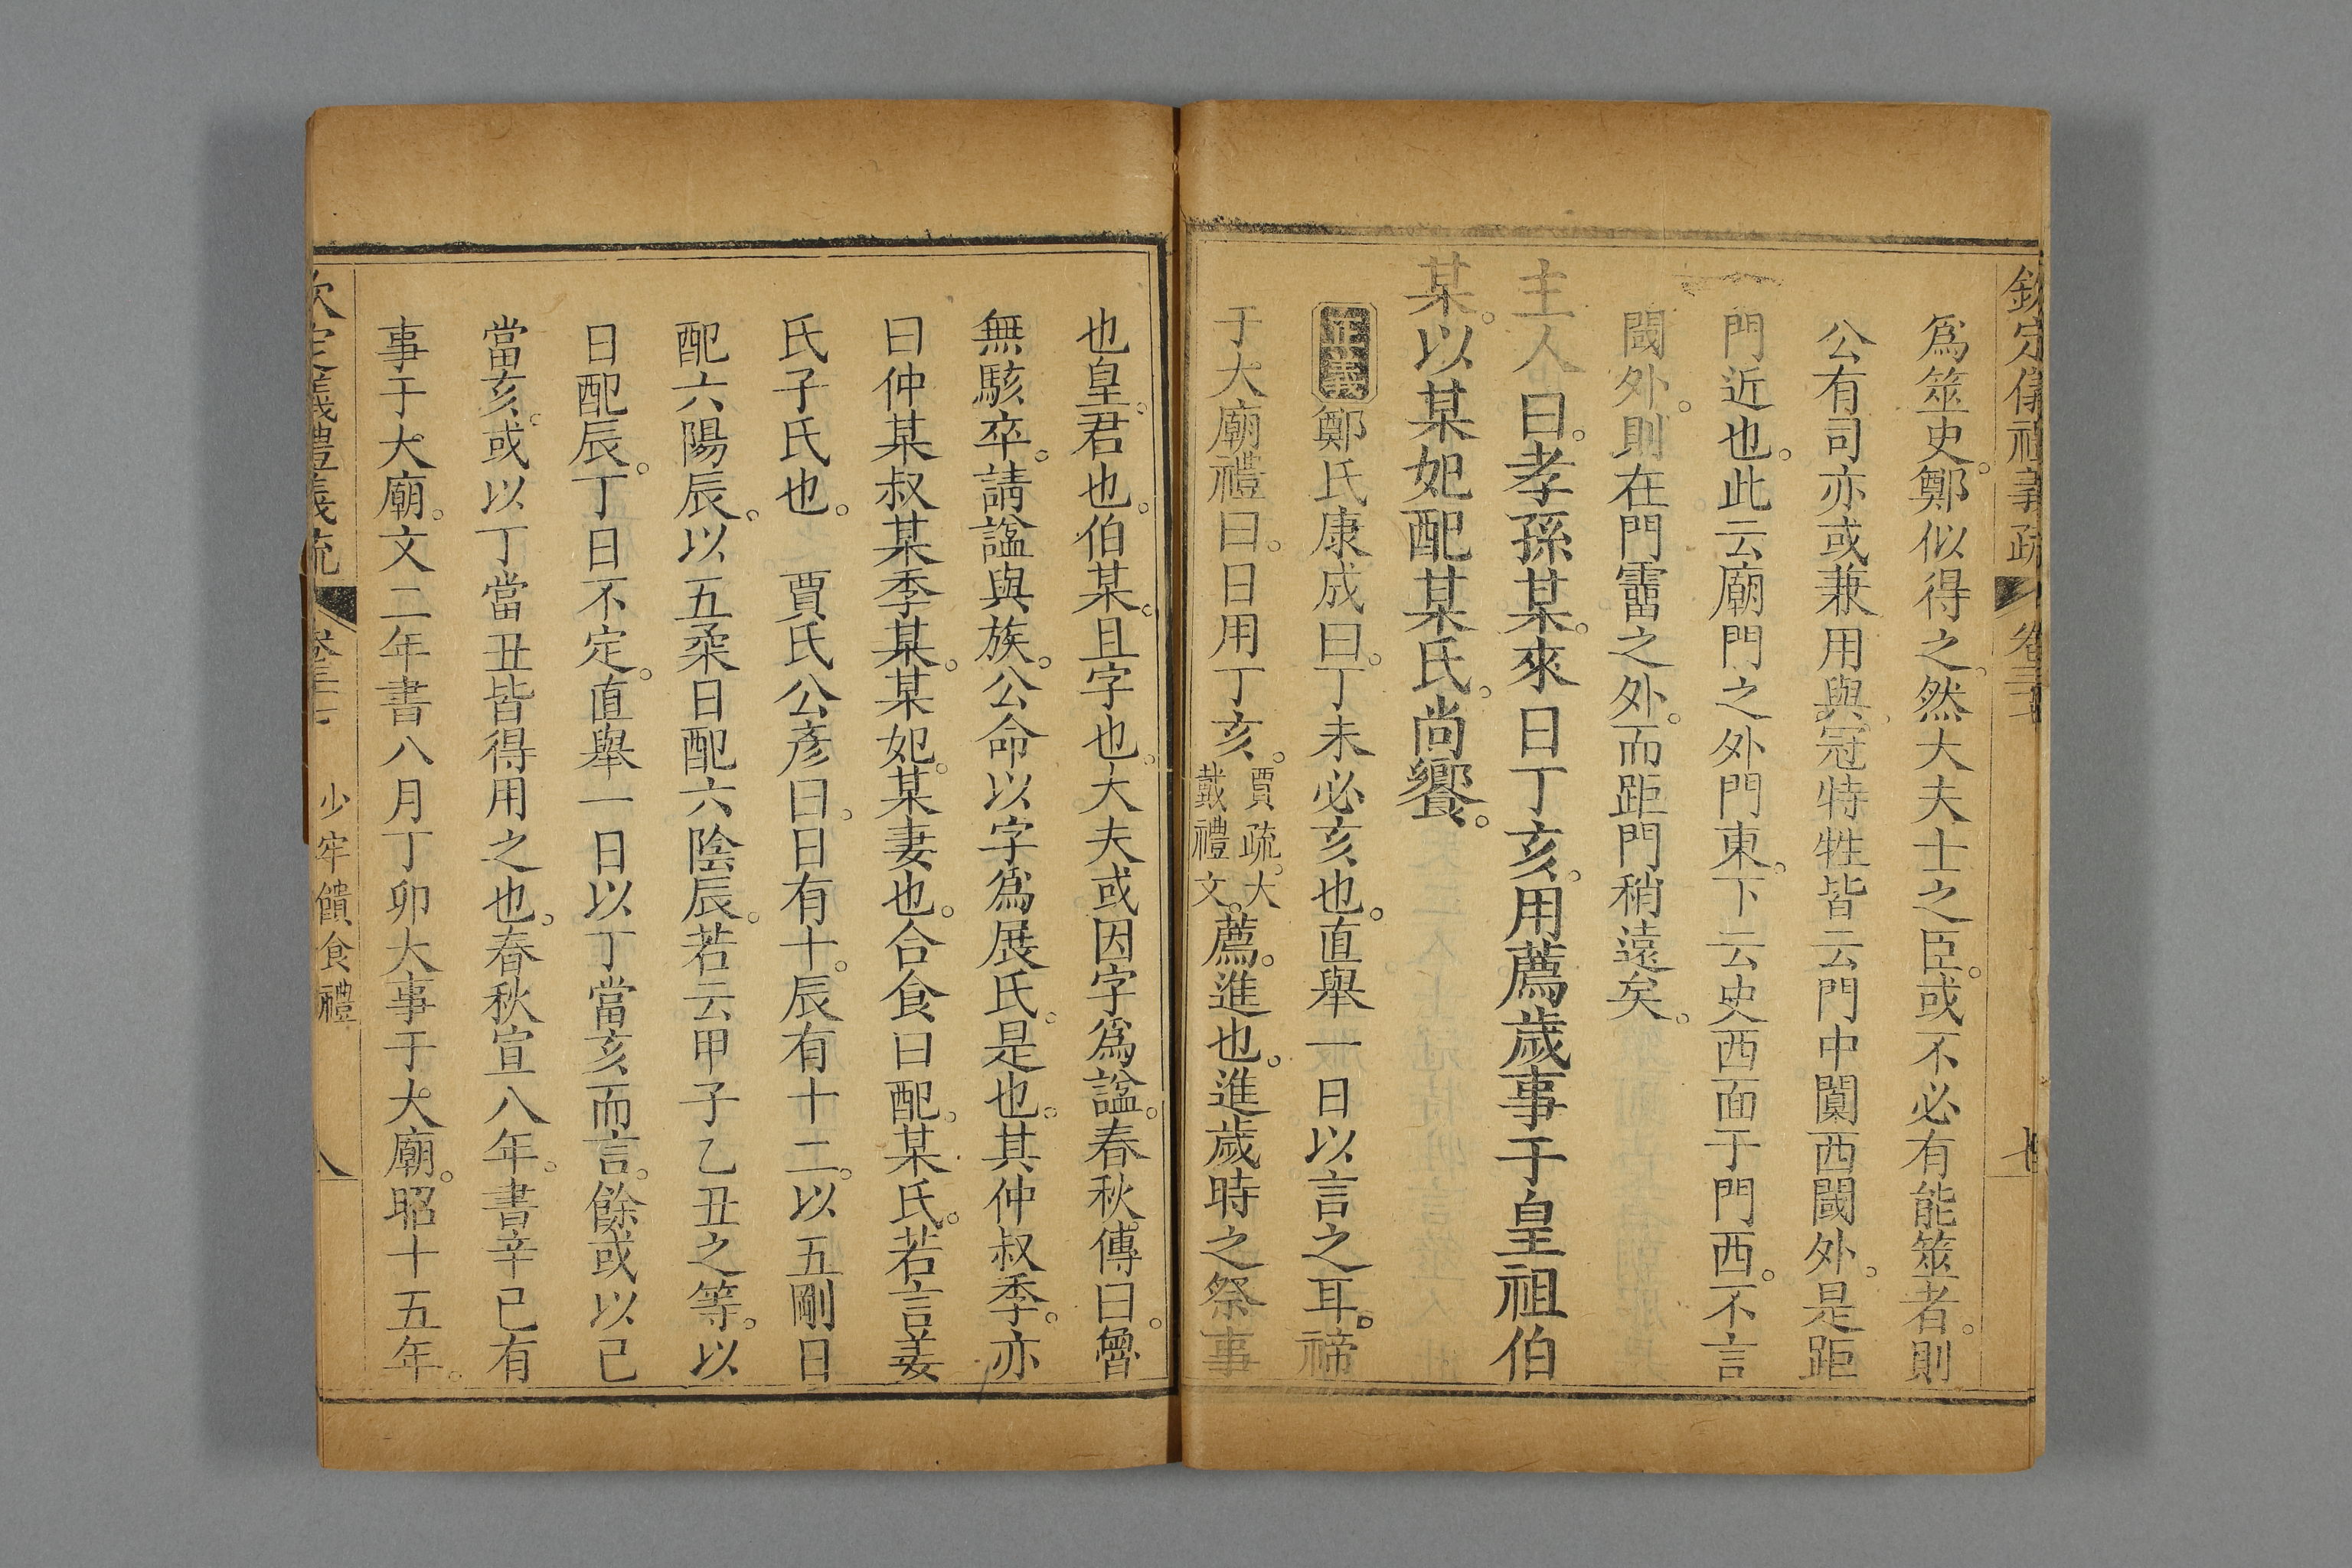 欽定儀禮義疏 卷三十七 七
爲筮史。鄭似得之。然大夫士之臣。或不必有能筮者。則
公有司亦或兼用與。冠特牲皆云門中闑西閾外。是距
門近也。此云廟門之外門東。下云史西面于門西。不言
閾外。則在門霤之外。而距門稍遠矣。
主人曰。孝孫某。來日丁亥。用薦歲事于皇祖伯
某。以某妃配某氏。尚饗。
正義 鄭氏康成曰。丁未必亥也。直舉一日以言之耳。禘
于大廟禮曰。日用丁亥。賈疏。大戴禮文。薦。進也。進歲時之祭事
也。皇。君也。伯某。且字也。大夫或因字爲諡。春秋傳曰。魯
無駭卒。請諡與族。公命以字爲展氏。是也。其仲叔季。亦
曰仲某叔某季某。某妃。某妻也。合食曰配。某氏。若言姜
氏子氏也。 賈氏公彥曰。日有十。辰有十二。以五剛日
配六陽辰。以五柔日配六陰辰。若云甲子乙丑之等。以
日配辰。丁日不定。直舉一日以丁當亥而言。餘或以己
當亥。或以丁當丑皆得用之也。春秋宣八年。書辛巳有
事于大廟。文二年書八月丁卯大事于大廟。昭十五年。
欽定儀禮義疏 卷三十七 少牢饋食禮 八